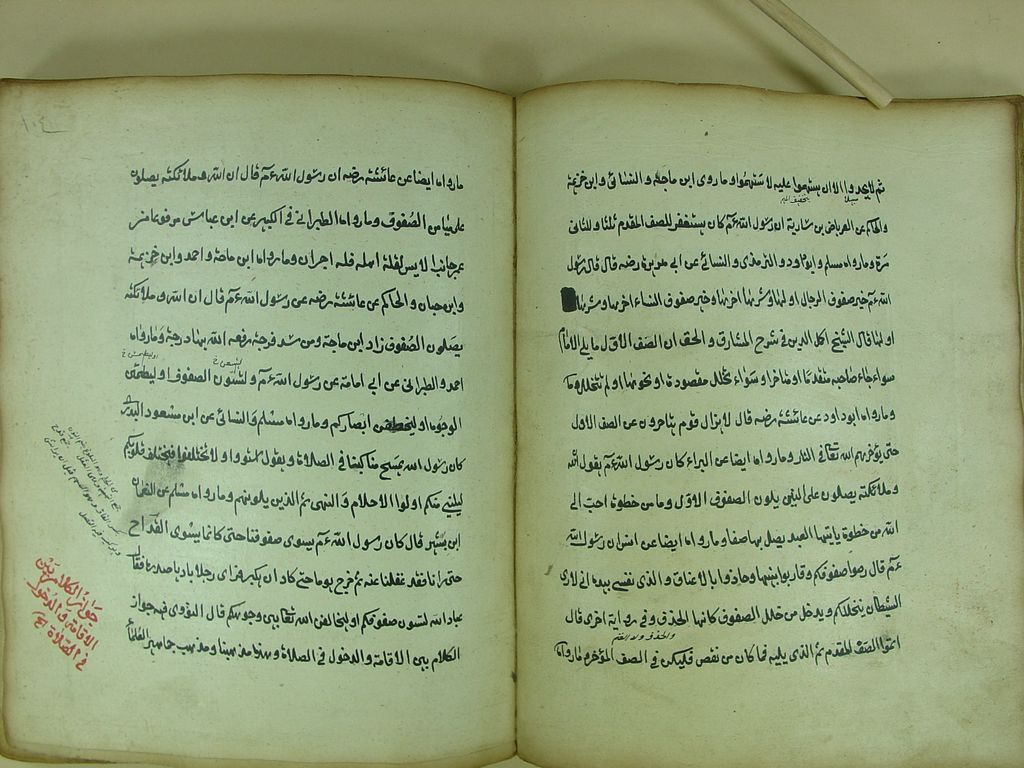 ثم لا يجدوا الا ان يستهموا عليه لاستهموا وما روى ابن ماجة والنسائى وابن خزيمة
والحاكم عن العرباض بن سارية ان رسول الله عم كان يستغفر للصف المقدم ثلثا وللثانى
مرة وما رواه مسلم وابو داود والترمذى والنسائى عن ابى هريرة رضه قال قال رسول
الله عم خير صفوف الرجال اولها وشرها آخرها وخير صفوف النساء آخرها وشرها
اولها قال الشيخ اكمل الدين فى شرح المشارق والحق ان الصف الاول ما يلى الامام
سواء جاء صاحبه متقدما او متاخرا وسواء تخلل مقصورة او نحوها او لم تتخلل
وما رواه ابو داود عن عائشة رضه قال لا يزال قوم يتاخرون عن الصف الاول
حتى يؤخرهم الله تعالى فى النار وما رواه ايضا عن البراء كان رسول الله عم يقول الله
وملائكته يصلون على الذين يلون الصفوف الاول وما من خطوة احب الى
الله من خطوة يمشيها العبد يصل بها صفا وما رواه ايضا عن انس ان رسول الله
عم قال رصوا صفوفكم وقاربوا بينها وحاذوا بالاعناق والذى نفسى بيده انى لارى
الشيطان يتخللكم ويدخل من خلل الصفوف كانها الحذف وفى رواية اخرى قال
اتموا الصف المقدم ثم الذى يليه فما كان من نقص فليكن فى الصف المؤخر وما رواه
ما رواه ايضا عن عائشة رضه ان رسول الله عم قال ان الله وملائكته يصلون
على ميامن الصفوف وما رواه الطبرانى فى الكبير عن ابن عباس مرفوعا من
عمر جانب الايسر لقلة اهله فله اجران وما رواه ابن ماجة واحمد وابن خزيمة
وابن حبان والحاكم عن عائشة رضه عن رسول الله عم قال ان الله وملائكته
يصلون الصفوف زاد ابن ماجة ومن سد فرجة رفعه الله بها درجة وما رواه
احمد والطبرانى عن ابى امامة عن رسول الله عم ولتسون الصفوف او ليطمسن
الوجوه او ليخطفن ابصاركم وما رواه مسلم والنسائى عن ابن مسعود البدرى
كان رسول الله يمسح مناكبنا فى الصلاة ويقول استووا ولا تختلفوا فتختلف قلوبكم
ليلينى منكم اولوا الاحلام والنهى ثم الذين يلونهم وما رواه مسلم عن النعمان
ابن بشير قال كان رسول الله عم يسوى صفوفنا حتى كانما يسوى القداح
حتى رانا فقد غفلنا عنه ثم خرج يوما حتى كاد ان يكبر فراى رجلا باديا صدره فقال
عباد الله لتسون صفوفكم او ليخالفن الله تعالى بين وجوهكم قال النووى فيه جواز
الكلام بين الاقامة والدخول فى الصلاة وهذا مذهبنا ومذهب جماهير العلماء
جواز الكلام بين
الاقامة والدخول
فى الصلاة